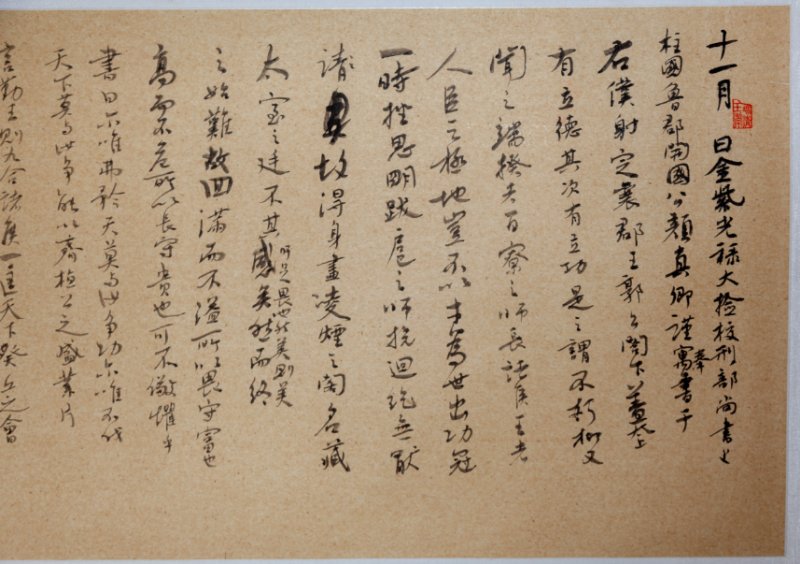 十一月 日金紫光禄大检校刑部尚書上
柱國魯郡開國公顏真卿謹寓奉書于
右僕射定襄郡王郭公閤下蓋太上
有立德其次有立功是之謂不朽抑又
聞之端揆者百寮之師長諸侯王者
人臣之極地豈不以才為世出功冠
一時挫思明跋扈之師抗迴紇無厭
請故得身畫凌煙之閣名藏
太室之廷不其盛矣然而終
可足畏也然美則美
之始難故曰滿而不溢所以長守富也
高而不危所以長守貴也可不儆懼乎
書曰尔唯弗矜天莫与汝争功尔唯不伐
天下莫与汝争能以齊桓公之盛業片
言勤王則九合諸侯一匡天下葵丘之會